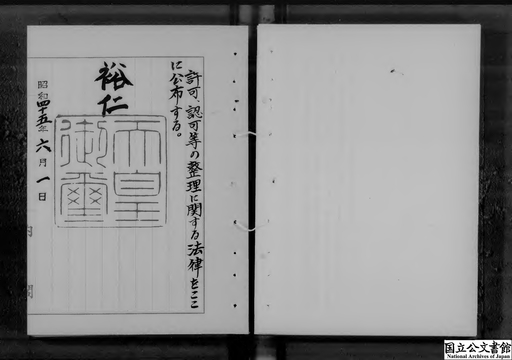 許可、認可等の整理に関する法律をここ
に公布する。
裕仁
天皇
御璽
昭和四十五年六月一日
内閣
国立公文書館
National Archives of Japan